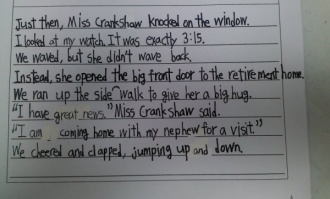 Just then, Miss Crankshaw knocked on the window.
I looked at my watch. It was exactly 3:15.
We waved, but she didn't wave back.
Instead, she opened the big front door to the retirement home.
We ran up the side walk to give her a big hug.
"I have great news." Miss Crankshaw said.
"I am coming home with my nephew for a visit."
We cheered and clapped, jumping up and down.